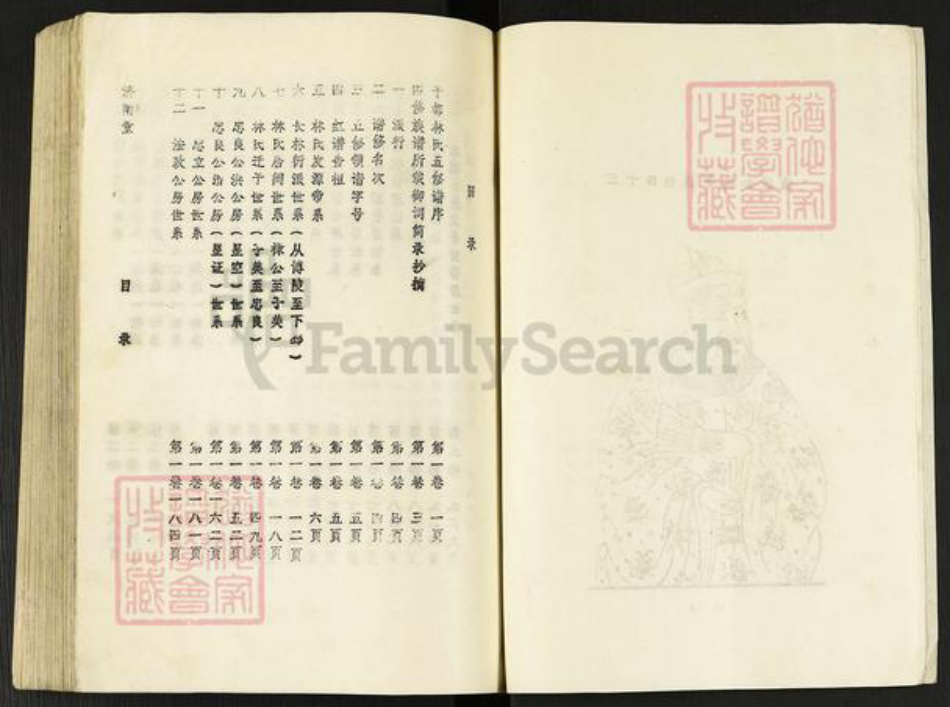 目 录
于都林氏五修谱序 第一卷 一页
四修族谱所载御词简录抄摘 第一卷 三页
一 派行 第一卷 四页
二 谱修名次 第一卷 四页
三 五修领谱字号 第一卷 五页
四 红谱告祖 第一卷 五页
五 林氏发源常系 第一卷 六页
六 长林衍派世系(从博陵至下邳) 第一卷 一二页
七 林氏居闽世系(禄公至子美) 第一卷 一八页
八 林氏迁于世系(子美至思良) 第一卷 四九页
九 思良公洪公房(星空)世系 第一卷 五二页
十 思良公浩公房(星证)世系 第一卷 一六二页
十一 思立公房世系 第一卷 一八一页
十二 法政公房世系 第一卷 一八四页
济南堂 目 录
FamilySearch